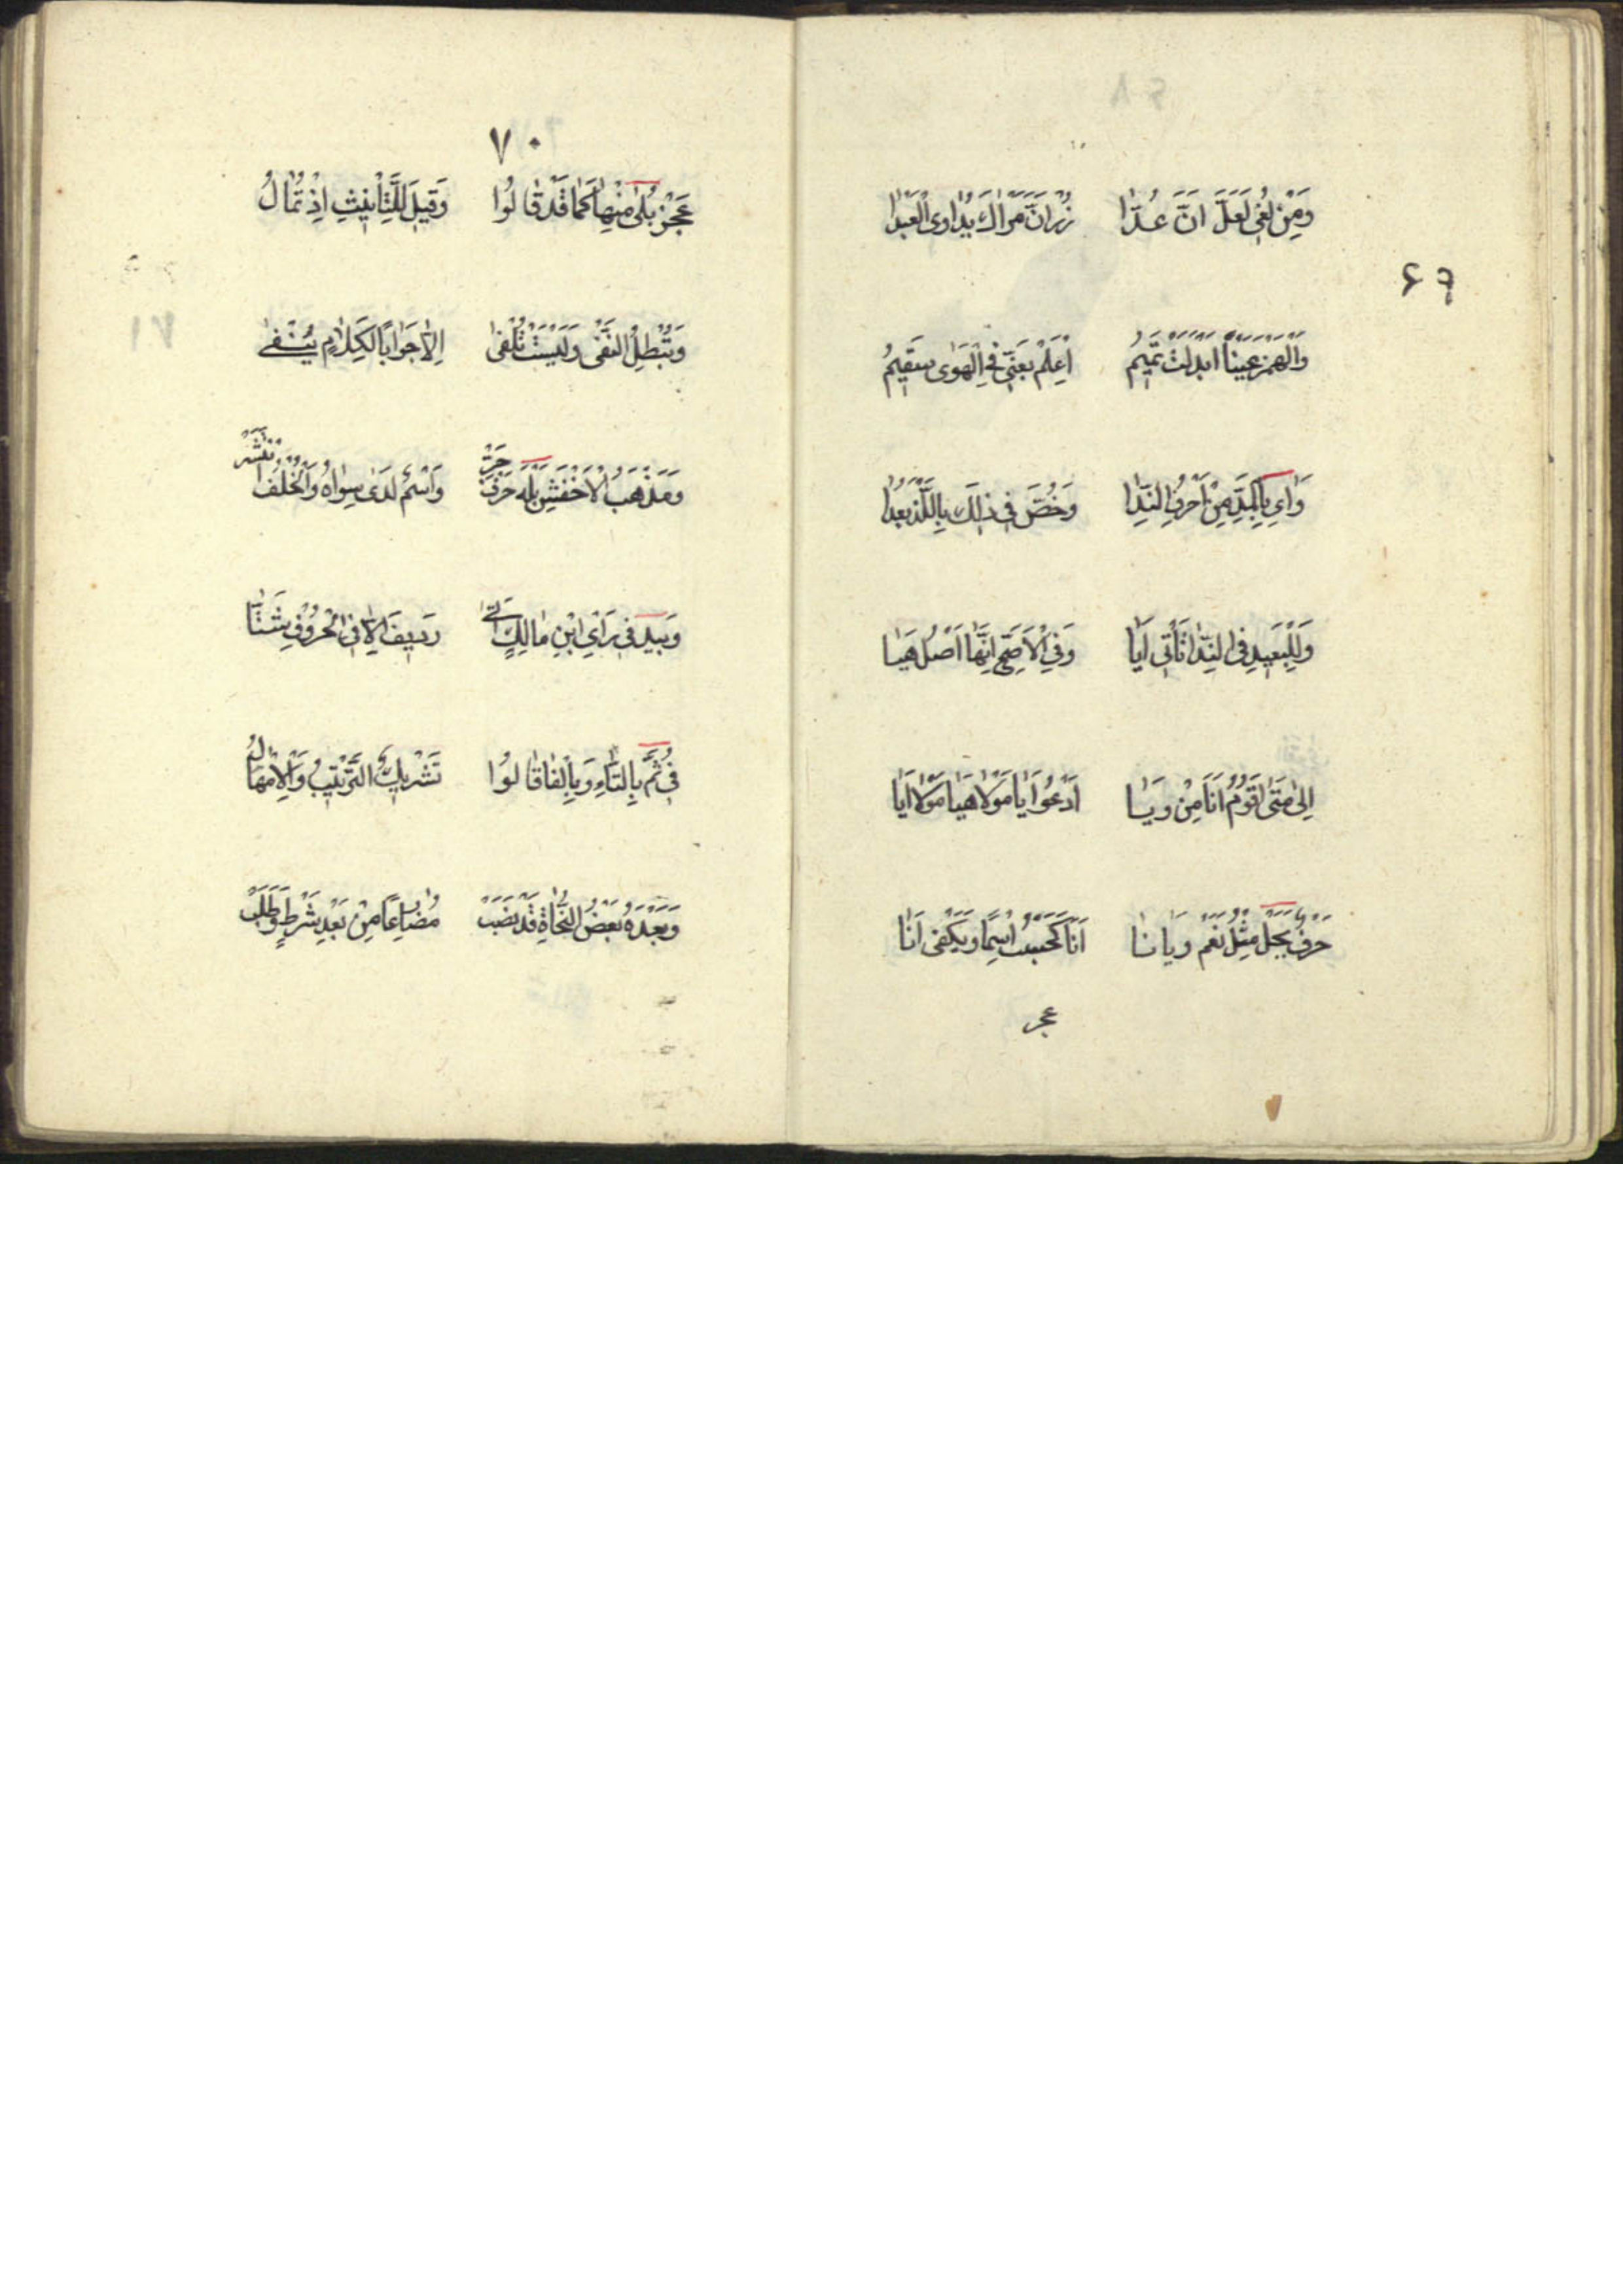 وَمِنْ لُغٰى لَعَلَّ اَنَّ عُدّٰا زُرْ اَنَّ مَرْاٰكَ يُدٰاوِى الْعَبْدٰا
۶۹
وَالْهَمْزَ عَيْنًا اَبْدَلَتْ تَمِيمُ اَعْلَمُ بِعَنّى فِى الْهَوٰى سَقِيمُ
وَاَىْ بِمَدٍّ مِنْ اَحْرُفِ النِّدٰا وَخُصَّ فِى ذٰلِكَ بِاللَّذْ بَعُدٰا
وَلِلْبَعِيدِ فِى النِّدٰا تَأْتِى اَيٰا وَفِى الْاَصَحِّ اِنَّهٰا اَصْلُ هَيٰا
اِلٰى مَتٰى اَقُومُ اَنَا مِنْ وَيٰا اَدْعُو اَيٰا مَوْلٰا هَيٰا مَوْلٰا اَيٰا
حَرْفٌ بَجَلْ مِثْلُ نَعَمْ وَيٰانٰا اَنٰا كَحَسْبُ اسْمًا وَيَكْفِى اَنٰا
عجز
٧٠
عَجْزُ بَلٰى مِنْهٰا كَمٰا قَدْ قٰالُوا وَقِيلَ لِلتَّأْنِيثِ اِذْ تُمٰالُ
وَتُبْطِلُ النَّفْىَ وَلَيْسَتْ تُلْفٰى اِلّٰا جَوٰابًا لِكَلٰامٍ يُنْفٰى
وَمَذْهَبُ الْاَخْفَشِ بَلْهَ حَرْفُ جَرّ وَاسْمٌ لَدٰى سِوٰاهُ وَالْخُلْفُ انْتَشَرْ
وَبَيْدَ فِى رَأْىِ ابْنِ مٰالِكٍ اَتٰى رَدِيفَ اِلّٰا فِى الْحُرُوفِ ثَبَتٰا
فِى ثُمَّ بِالتّٰاءِ وَبِالْفٰا قٰالُوا تَشْرِيكٌ التَّرْتِيبُ وَالْاِمْهٰالُ
وَبَعْدَهُ بَعْضُ النُّحٰاةِ قَدْ نَصَبْ مُضٰارِعًا مِنْ بَعْدِ شَرْطٍ وَطَلَبْ